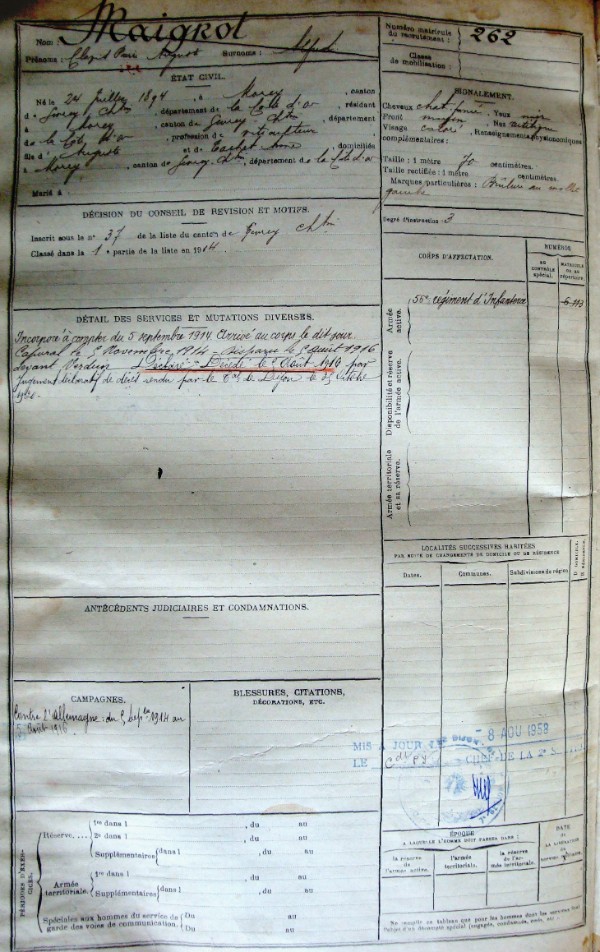 Nom: Maigrot
Prénoms: Surnoms: Alfred
ÉTAT CIVIL.
Né le 24 Juillet 1894, à Morey, canton
de Gevrey-Chtin, département de la Côte d'or, résidant
à Morey, canton de Gevrey Chtin, département
de la Côte d'or, profession de
fils d'Auguste et de domiciliés
à Morey, canton de Gevrey-Chtin, département de la Côte d'or
Marié à
DÉCISION DU CONSEIL DE REVISION ET MOTIFS.
Inscrit sous le n° 37 de la liste du canton de Gevrey Chtin
Classé dans la 1e partie de la liste en 1914.
DÉTAIL DES SERVICES ET MUTATIONS DIVERSES.
Incorporé à compter du 5 septembre 1914. Arrivé au corps le dit jour.
Caporal le 5 Novembre 1914 - Disparu le 5 Août 1916
devant Verdun. Déclaré Décédé le 5 Août 1916 par
jugement déclaratif de décès rendu par le de Dijon le Octobre
ANTÉCÉDENTS JUDICIAIRES ET CONDAMNATIONS.
CAMPAGNES.
Contre l'Allemagne: du 5 Septbre 1914 au
5 Août 1916
BLESSURES, CITATIONS,
DÉCORATIONS, ETC.
PÉRIODES D'EXERCICES.
Réserve. ....
1re dans l , du au
2e dans l , du au
Supplémentaires dans l , du au
Armée territoriale.
1re dans l , du au
Supplémentaires dans l , du au
Spéciales aux hommes du service de garde des voies de communication. Du au
Du au
Numéro matricule
du recrutement: 262
Classe
de mobilisation:
SIGNALEMENT.
Cheveux Yeux
Front moyen, Nez rectiligne
Visage Renseignements physionomiques
complémentaires:
Taille: 1 mètre 70 centimètres.
Taille rectifiée: 1 mètre centimètres.
Marques particulières: Brûlure au mollet
gauche
Degré d'instruction 3
CORPS D'AFFECTATION.
NUMÉROS
AU CONTRÔLE SPÉCIAL.
MATRICULE OU AU RÉPERTOIRE.
Armée active.
56e régiment d'Infanterie
Disponibilité et réserve de l'armée active.
Armée territoriale et sa réserve.
LOCALITÉS SUCCESSIVES HABITÉES
PAR SUITE DE CHANGEMENTS DE DOMICILE OU DE RÉSIDENCE
D. DOMICILE.
R. RÉSIDENCE.
Dates. Communes. Subdivisions de région
- 8 AOU 1959
MIS A JOUR
LE
CHEF DE LA 2e
ÉPOQUE
A LAQUELLE L'HOMME DOIT PASSER DANS:
la réserve de l'armée active.
l'armée territoriale.
la réserve de l'armée territoriale.
DATE
DE LA LIBÉRATION DU SERVICE MILITAIRE.